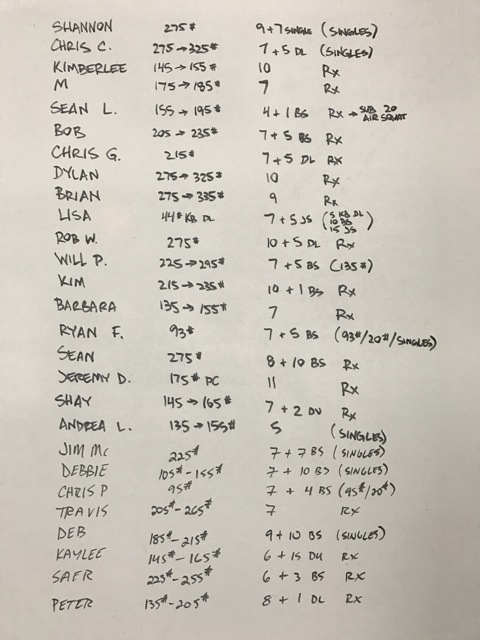 SHANNON 275# 9+7 SINGLE (SINGLES)
CHRIS C. 275→325# 7+5 DL (SINGLES)
KIMBERLEE 145→155# 10 Rx
M 175→185# 7 Rx
SEAN L. 155→195# 4+1 BS Rx → SUB 20 AIR SQUAT
BOB 205→235# 7+5 BS Rx
CHRIS G. 215# 7+5 DL Rx
DYLAN 275→325# 10 Rx
BRIAN 275→335# 9 Rx
LISA 44# KB DL 7+5 JS (5 KB DL 10 BS 15 JS)
ROB W. 275# 10+5 DL Rx
WILL P. 225→295# 7+5 BS (135#)
KIM 215→235# 10+1 BS Rx
BARBARA 135→155# 7 Rx
RYAN F. 93# 7+5 BS (93#/20#/SINGLES)
SEAN 275# 8+10 BS Rx
JEREMY D. 175# PC 11 Rx
SHAY 145→165# 7+2 DU Rx
ANDREA L. 135→155# 5 (SINGLES)
JIM Mc 225# 7+7 BS (SINGLES)
DEBBIE 105#-155# 7+10 BS (SINGLES)
CHRIS P 95# 7+4 BS (95#/20#)
TRAVIS 205#-265# 7 RX
DEB 185#-215# 9+10 BS (SINGLES)
KAYLEE 145#-165# 6+15 DU RX
SAER 225#-255# 6+3 BS RX
PETER 135#-205# 8+1 DL RX